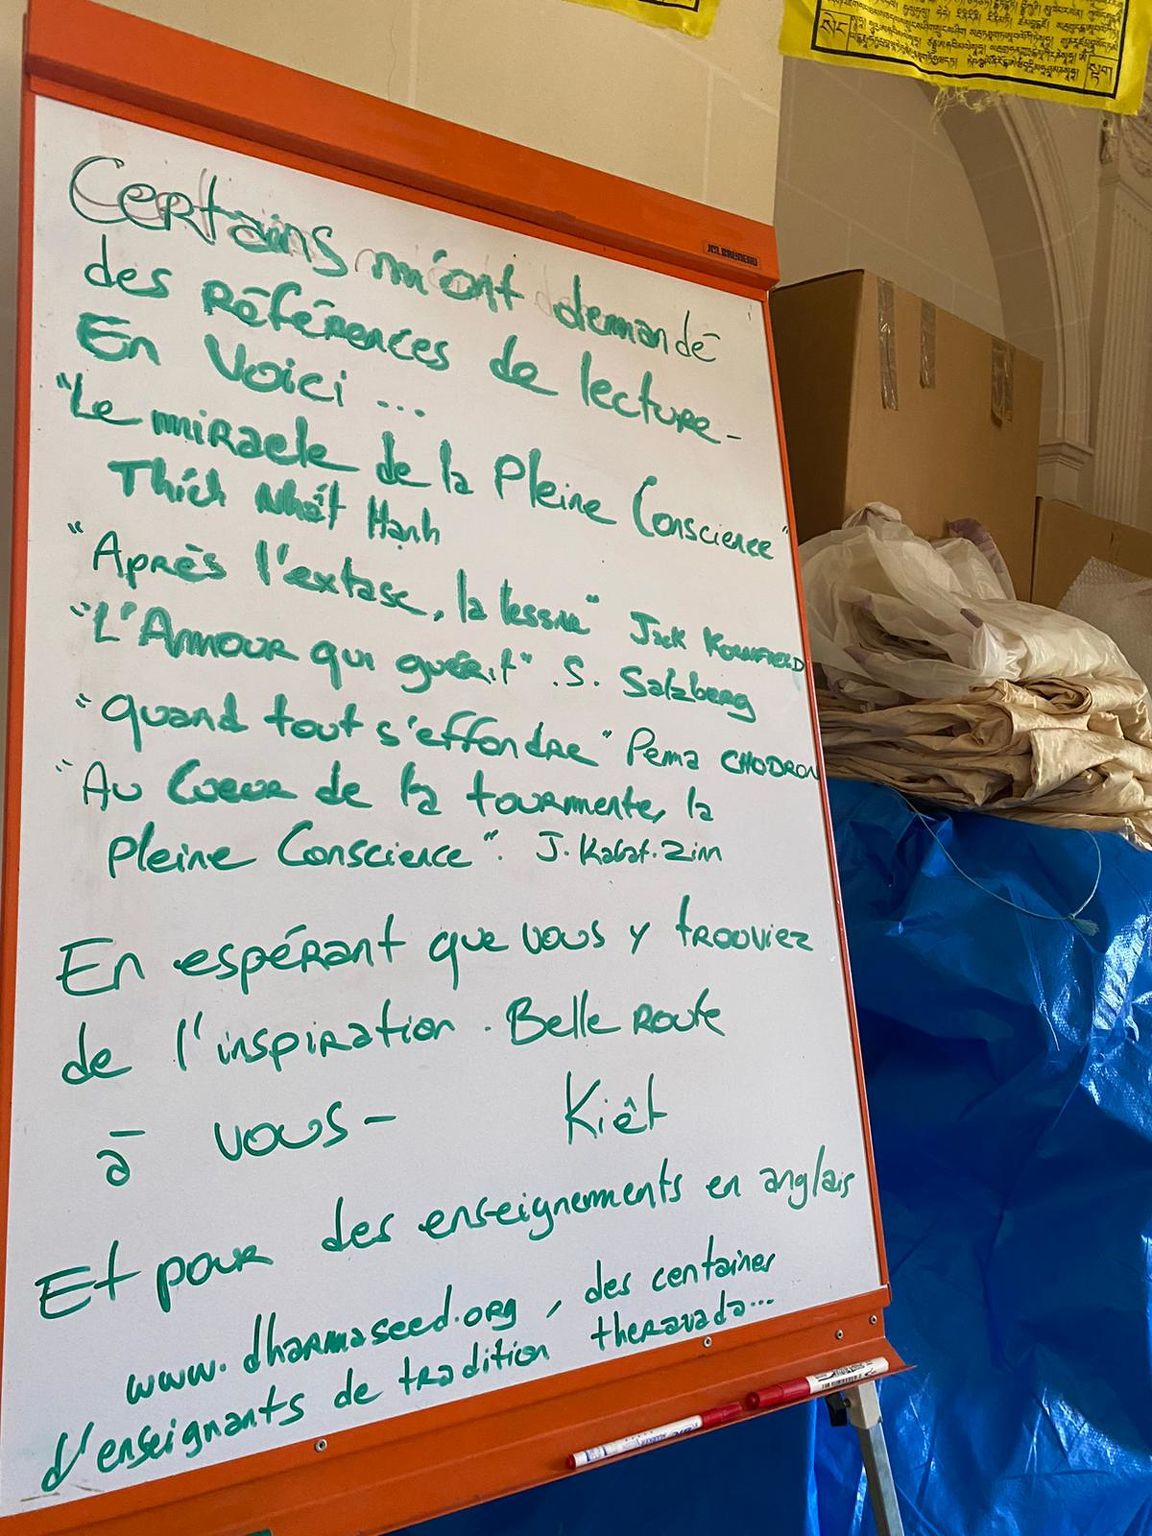 Certains m'ont demandé
des références de lecture -
En voici ...
"Le miracle de la Pleine Conscience"
Thích Nhất Hạnh
"Après l'extase, la lessive" Jack KORNFIELD
"L'Amour qui guérit". S. Salzberg
"Quand tout s'effondre" Pema CHODRON
"Au Coeur de la tourmente, la
pleine Conscience". J. Kabat.Zinn
En espérant que vous y trouviez
de l'inspiration. Belle route
à vous -
Kiêt
Et pour des enseignements en anglais
www.dharmaseed.org, des centaines
d'enseignants de tradition theravada...